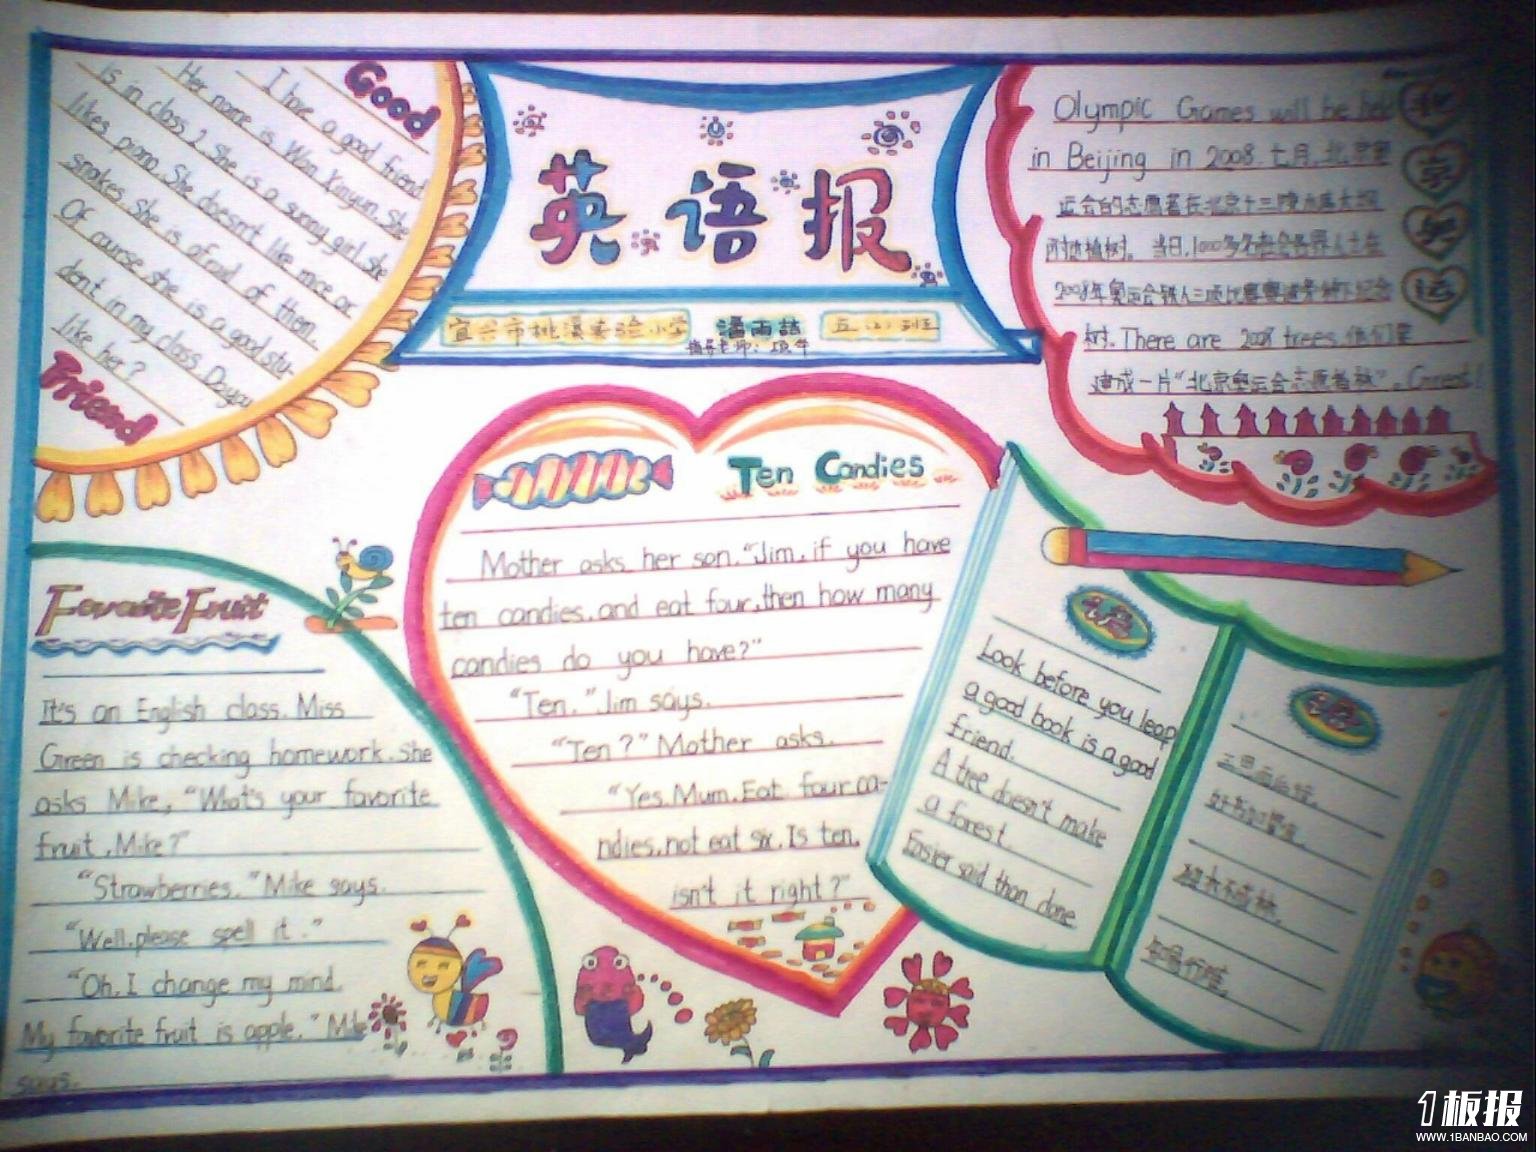 Good
I have a good friend
Her name is Wan Xinyun. She
is in class 2. She is a sunny girl. She
likes piano. She doesn't like mice or
snakes. She is afraid of them.
Of course she is a good stu-
dent in my class. Do you
like her?
Friend
英语报
宜兴市桃溪实验小学 潘雨喆 五(2)班
指导老师:
Olympic Games will be held
in Beijing in 2008. 七月,北京奥
运会的志愿者在北京十三陵水库大坝
附近植树。当日,1000多名社会各界人士在
2008年奥运会铁人三项比赛赛道旁种下纪念
树. There are 2008 trees. 他们要
建成一片“北京奥运会志愿者林”。Great!
北
京
奥
运
Ten Candies
Mother asks her son. "Jim, if you have
ten candies, and eat four, then how many
candies do you have?"
"Ten." Jim says.
"Ten?" Mother asks.
"Yes, Mum. Eat four ca-
ndies, not eat six. Is ten,
isn't it right?"
Favorite Fruit
It's an English class. Miss
Green is checking homework. She
asks Mike, "What's your favorite
fruit, Mike?"
"Strawberries." Mike says.
"Well, please spell it."
"Oh, I change my mind.
My favorite fruit is apple." Mike
says.
Look before you leap
a good book is a good
friend.
A tree doesn't make
a forest.
Easier said than done
三思而后行.
好书如挚友.
独木不成林.
知易行难.
1板报
WWW.1BANBAO.COM